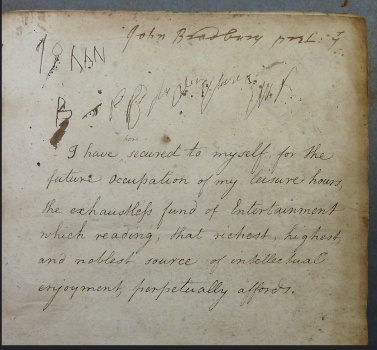 John Bradbury
have
I have secured to myself for the
future occupation of my leisure hours,
the exhaustless fund of Entertainment
which reading, that richest, highest,
and noblest source of intellectual
enjoyment, perpetually affords.